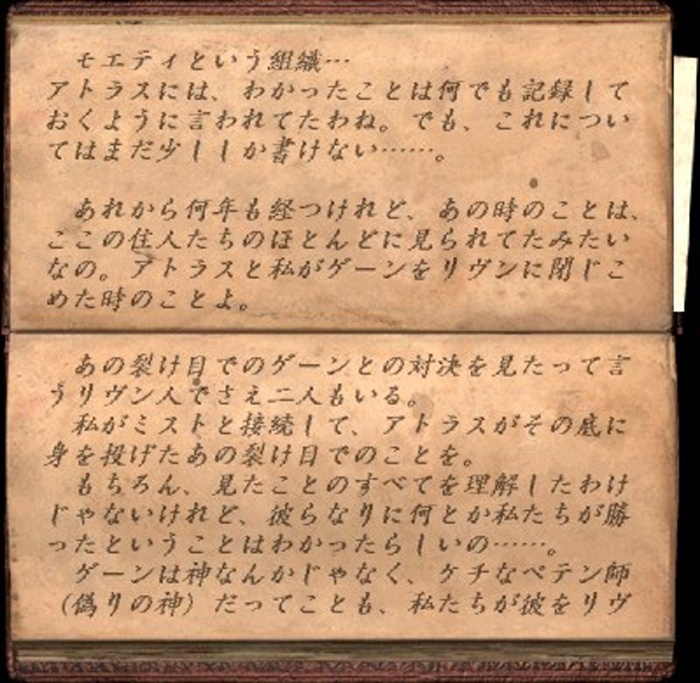 モエティという組織…
アトラスには、わかったことは何でも記録して
おくように言われてたわね。でも、これについ
てはまだ少ししか書けない……。
あれから何年も経つけれど、あの時のことは、
ここの住人たちのほとんどに見られてたみたい
なの。アトラスと私がゲーンをリヴンに閉じこ
めた時のことよ。
あの裂け目でのゲーンとの対決を見たって言
うリヴン人でさえ二人もいる。
私がミストと接続して、アトラスがその底に
身を投げたあの裂け目でのことを。
もちろん、見たことのすべてを理解したわけ
じゃないけれど、彼らなりに何とか私たちが勝
ったということはわかったらしいの……。
ゲーンは神なんかじゃなく、ケチなペテン師
（偽りの神）だってことも、私たちが彼をリヴ